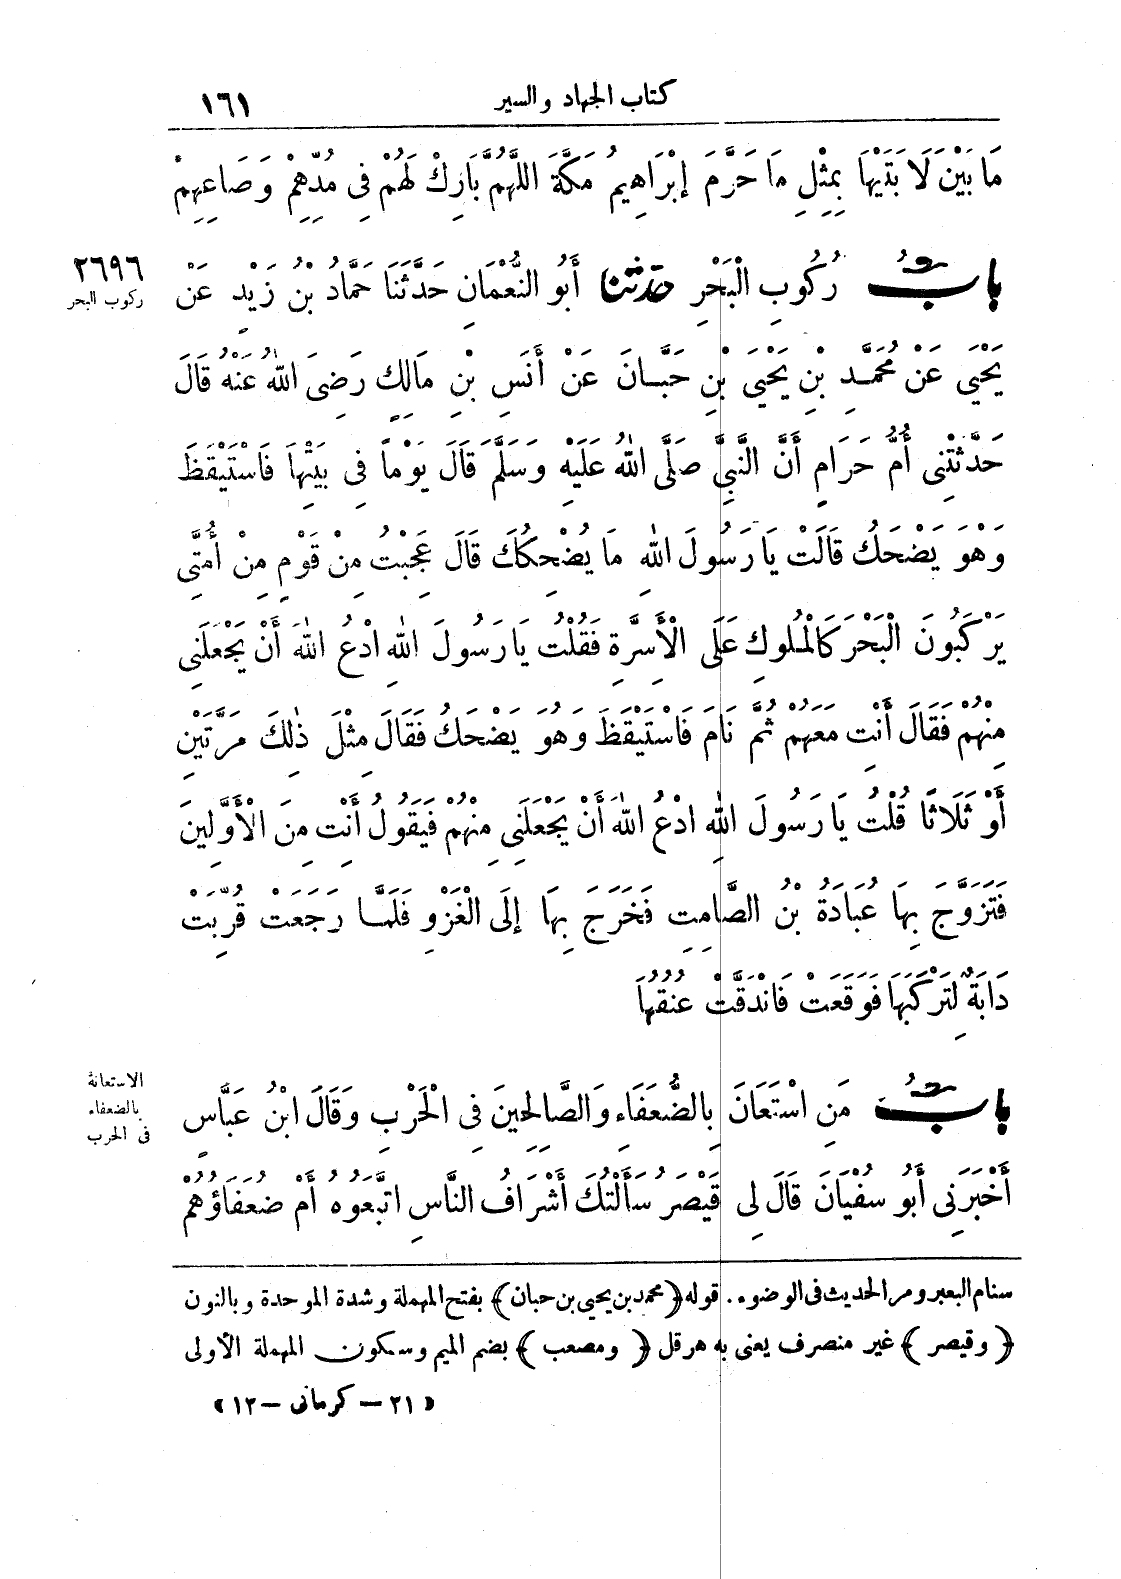 كتاب الجهاد والسير
١٦١
مَا بَيْنَ لَا بَتَيْهَا بِمِثْلِ مَا حَرَّمَ إِبْرَاهِيمُ مَكَّةَ اللَّهُمَّ بَارِكْ لَهُمْ فِى مُدِّهِمْ وَصَاعِهِمْ
بابُ رُكُوبِ الْبَحْرِ حدثنا أَبُو النُّعْمَانِ حَدَّثَنَا حَمَّادُ بْنُ زَيْدٍ عَنْ
٢٦٩٦
ركوب البحر
يَحْيَى عَنْ مُحَمَّدِ بْنِ يَحْيَى بْنِ حَبَّانَ عَنْ أَنَسِ بْنِ مَالِكٍ رَضِىَ اللهُ عَنْهُ قَالَ
حَدَّثَتْنِى أُمُّ حَرَامٍ أَنَّ النَّبِىَّ صَلَّى اللهُ عَلَيْهِ وَسَلَّمَ قَالَ يَوْماً فِى بَيْتِهَا فَاسْتَيْقَظَ
وَهْوَ يَضْحَكُ قَالَتْ يَا رَسُولَ اللهِ مَا يُضْحِكُكَ قَالَ عَجِبْتُ مِنْ قَوْمٍ مِنْ أُمَّتِى
يَرْكَبُونَ الْبَحْرَ كَالْمُلُوكِ عَلَى الْأَسِرَّةِ فَقُلْتُ يَا رَسُولَ اللهِ ادْعُ اللهَ أَنْ يَجْعَلَنِى
مِنْهُمْ فَقَالَ أَنْتِ مَعَهُمْ ثُمَّ نَامَ فَاسْتَيْقَظَ وَهُوَ يَضْحَكُ فَقَالَ مِثْلَ ذٰلِكَ مَرَّتَيْنِ
أَوْ ثَلَاثًا قُلْتُ يَا رَسُولَ اللهِ ادْعُ اللهَ أَنْ يَجْعَلَنِى مِنْهُمْ فَيَقُولُ أَنْتِ مِنَ الْأَوَّلِينَ
فَتَزَوَّجَ بِهَا عُبَادَةُ بْنُ الصَّامِتِ فَخَرَجَ بِهَا إِلَى الْغَزْوِ فَلَمَّا رَجَعَتْ قُرِّبَتْ
دَابَةٌ لِتَرْكَبَهَا فَوَقَعَتْ فَانْدَقَّتْ عُنُقُهَا
بابُ مَنِ اسْتَعَانَ بِالضُّعَفَاءِ وَالصَّالِحِينَ فِى الْحَرْبِ وَقَالَ ابْنُ عَبَّاسٍ
الاستعانة
بالضعفاء
فى الحرب
أَخْبَرَنِى أَبُو سُفْيَانَ قَالَ لِى قَيْصَرُ سَأَلْتُكَ أَشْرَافُ النَّاسِ اتَّبَعُوهُ أَمْ ضُعَفَاؤُهُمْ
سنام البعير ومر الحديث فى الوضوء. قوله ﴿محمد بن يحيى بن حبان﴾ بفتح المهملة وشدة الموحدة وبالنون
﴿وقيصر﴾ غير منصرف يعنى به هرقل ﴿ومصعب﴾ بضم الميم وسكون المهملة الأولى
«٢١ – كرمانى – ١٢»